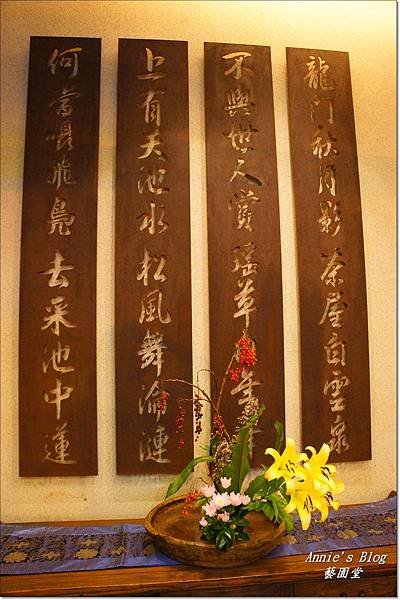 龍門秋月影茶屋白雲泉
不與世人賞瑤草自年年
上有天池水松風舞淪漣
何當躡飛鳧去采池中蓮
Annie's Blog
藝園堂